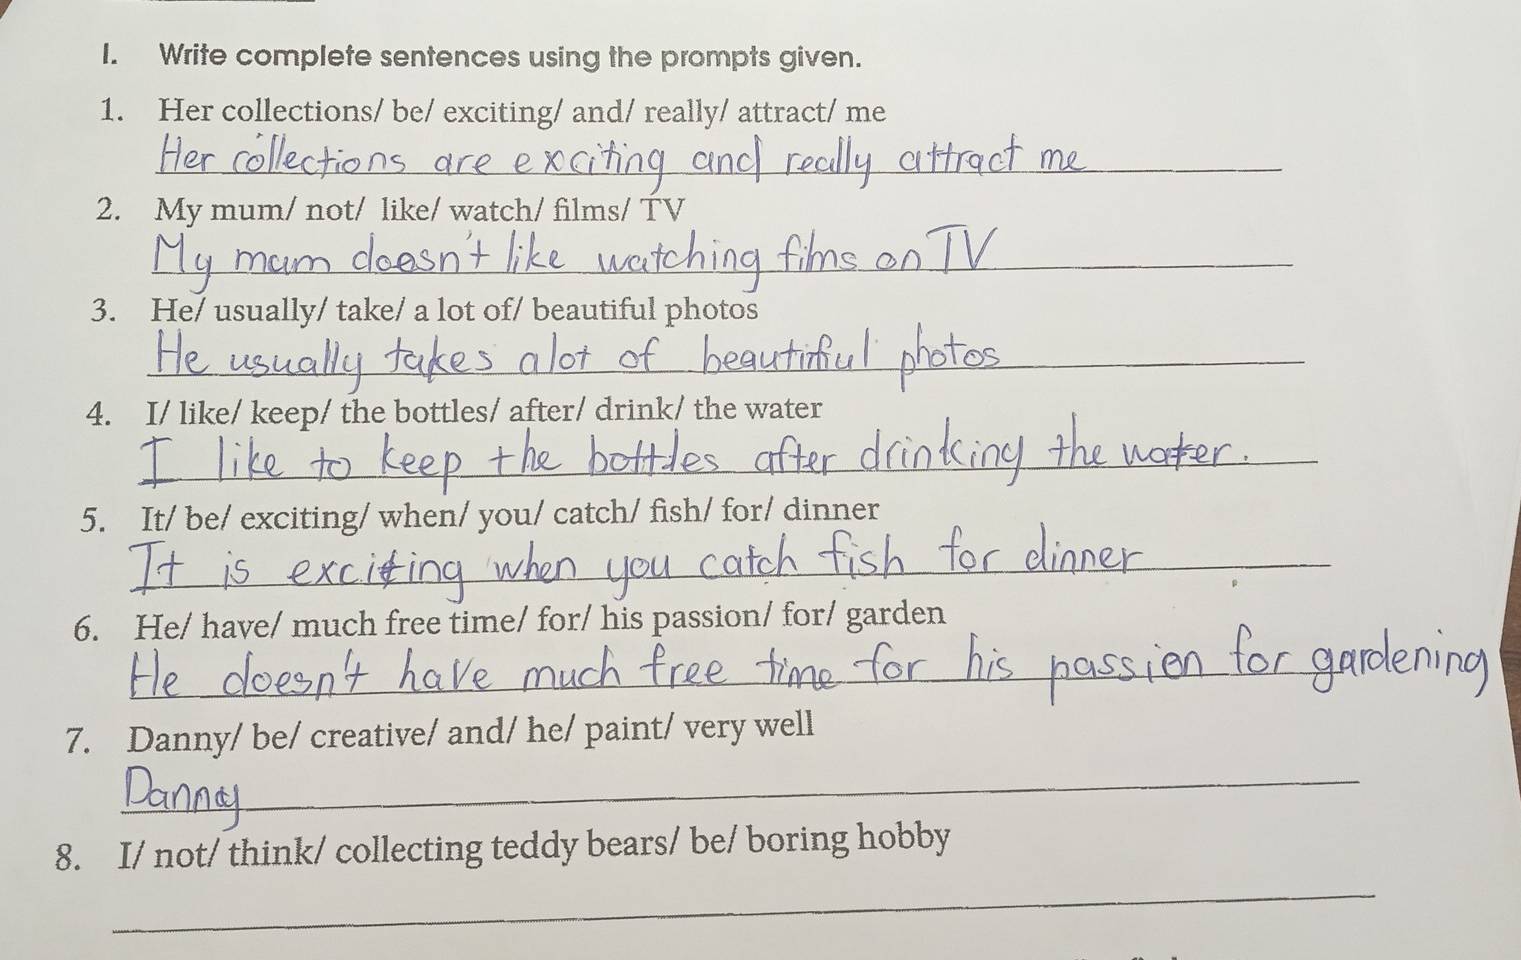 I. Write complete sentences using the prompts given.
1. Her collections/ be/ exciting/ and/ really/ attract/ me
Her collections are exciting and really attract me
2. My mum/ not/ like/ watch/ films/ TV
My mum doesn't like watching films on TV
3. He/ usually/ take/ a lot of/ beautiful photos
He usually takes a lot of beautiful photos
4. I/ like/ keep/ the bottles/ after/ drink/ the water
I like to keep the bottles after drinking the water.
5. It/ be/ exciting/ when/ you/ catch/ fish/ for/ dinner
It is exciting when you catch fish for dinner
6. He/ have/ much free time/ for/ his passion/ for/ garden
He doesn't have much free time for his passion for gardening
7. Danny/ be/ creative/ and/ he/ paint/ very well
Danny
8. I/ not/ think/ collecting teddy bears/ be/ boring hobby